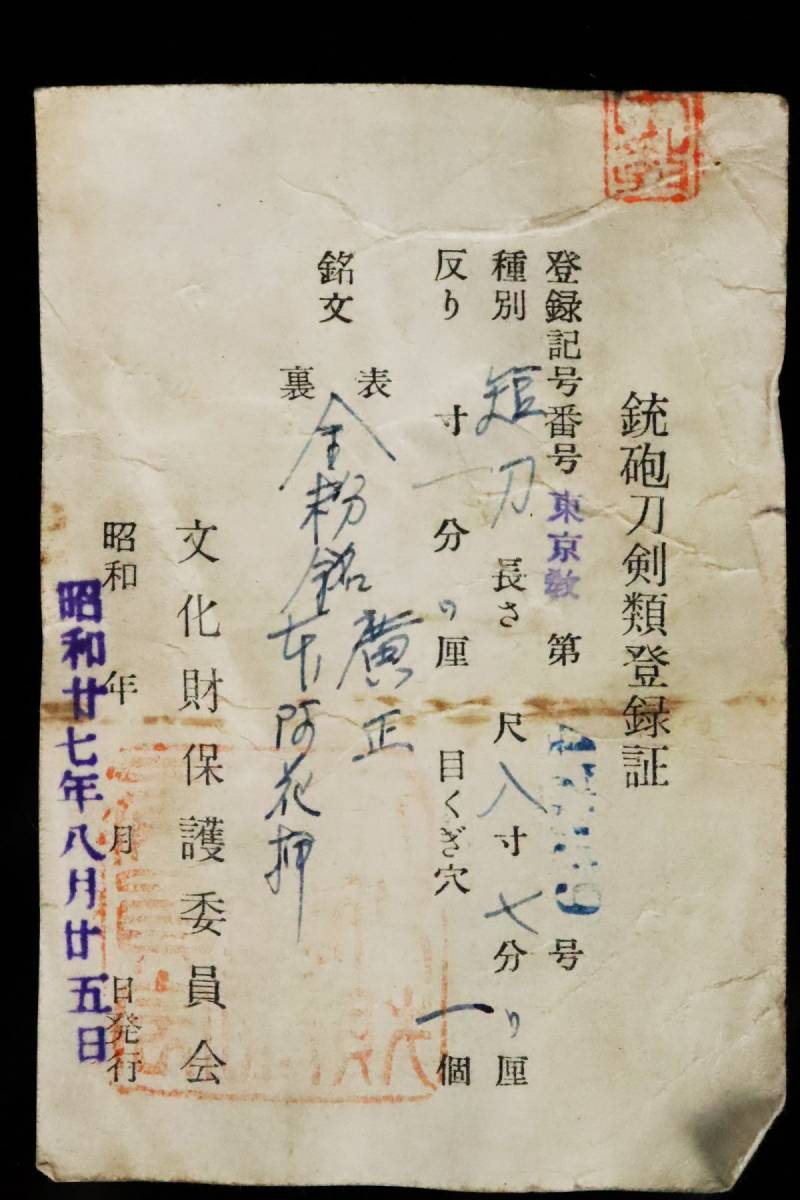 銃砲刀剣類登録証
登録記号番号 東京教 第 号
種別 短刀 長さ 尺 八寸 七分 厘
反り 寸 一分 厘 目くぎ穴 一個
銘文 表 廣正
裏 金粉銘 本阿花押
文化財保護委員会
昭和 年 月 日発行
昭和廿七年八月廿五日